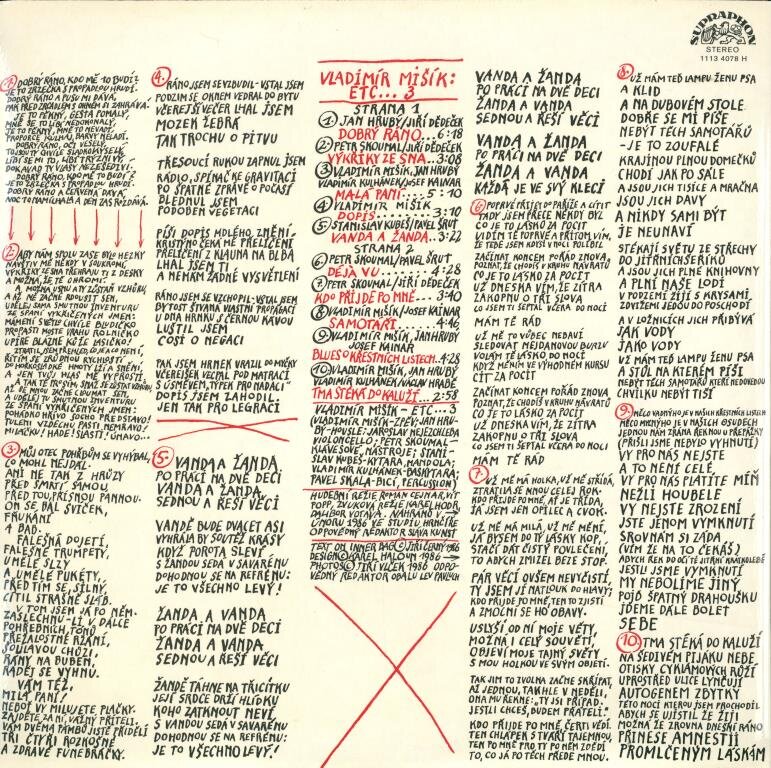 SUPRAPHON
STEREO
1113 4078 H
1. DOBRÝ RÁNO, KDO MĚ TO BUDÍ?
JE TO ZRZEČKA S PROPADLOU HRUDÍ.
DOBRÝ RÁNO A PUSU MI DÁVÁ,
PAK PŘED ZRCADLEM S OKNEM SI ZAHRÁVÁ.
JE TO PĚKNÝ, GESTA POMALÝ,
MNĚ SE TO LÍBÍ NEDOKONALÝ,
JE TO PĚKNÝ, MNĚ TO NEVADÍ,
PROPORCE KOULHAJ, BARVY NELADÍ.
DOBRÝ RÁNO, OČI VESELÝ,
LÍBÍ SE MI TO, LÍBÍ
DOBRÝ RÁNO, KDO MĚ TO BUDÍ?
JE TO ZRZEČKA S PROPADLOU HRUDÍ.
DOBRÝ RÁNO A ČERVENÁ DÁVÁ,
NOC TO NAMÍCHALA A DEN ZAS ROZDÁVÁ.
2. ABY NÁM SPOLU ZASE BYLO HEZKY
NAVŠTIV MĚ NĚKDY V SOUKROMÍ,
VÝKŘIKY ZE SNA PŘEHRAJU TI Z DESKY
A MOŽNÁ, ŽE TĚ OHROMÍ.
A MOŽNÁ JSOU ANY ZŮSTAN VZHŮRU,
A AŽ NĚ ZAČNE ROUDIT SEN,
UDĚLEJ SAMA SMUTNOU INVENTURU
ZE SPANÍ VYKŘIČENÝCH JMEN:
MÁMENÍ SVĚTO CHVÍLE BLUDIČKO
PROPASTI MOSTE VRANO ROLNIČKO
UPÍRE BLÁZNE KŮŽE LASIČKO.
3. MŮJ OTEC POHŘBŮM SE VYHÝBAL,
CO MOHL NEJDÁL.
ANI NE TAK Z HRŮZY
PŘED SMRTÍ SAMOU,
PŘED TOU, PŘÍSNOU PANNOU.
ON SE BÁL SVÍČEK,
FRKÁNÍ
A BAB.
FALEŠNÁ DOJETÍ,
FALEŠNÉ TRUMPETY,
UMĚLÉ SLZY
A UMĚLÉ PUKÉTY,
PŘED TÍM SE, SILNÝ,
CÍTIL STRAŠNĚ SLÁB.
V TOM JSEM JÁ PO NĚM.
ZASLECHNU-LI V DÁLCE
POHŘEBNÍCH TÓNŮ
PŘEŽALOSTNÉ RŽÁNÍ,
ŠOULAVOU CHŮZI,
RÁNY NA BUBEN,
RADĚJ SE VYHNU.
VÁM TÉŽ,
MILÁ PANÍ!
NEBOŤ VY MILUJETE PLAČKY.
ZAJDĚTE ZA NÍ, VÁŽNÝ PŘÍTELI.
VÁM DVĚMA TAMBO JISTĚ PŘIDĚLÍ
TŘI ČTYŘI ROZKOŠNÉ
A ZDRAVÉ FUNEBRÁČKY.
4. RÁNO JSEM SE VZBUDIL - VSTAL JSEM
PODZIM SE OKNEM VEDRAL DO BYTU
VČEREJŠÍ VEČER LHAL JSEM
MOZEK ŽEBRÁ
TAK TROCHU O PITVU
TŘESOUCÍ RUKOU ZAPNUL JSEM
RÁDIO, SPÍNAČ KE GRAVITACI
PO ŠPATNÉ ZPRÁVĚ O POČASÍ
BLEDNUL JSEM
PODOBEN VEGETACI
PÍŠI DOPIS MDLÉHO, ZNĚNÍ
KRISTÝNO ČEKÁ MĚ PŘELÍČENÍ
PŘELÍČENÍ Z KLAUNA NA BLBA
LHAL JSEM TI
A NEMÁM ŽÁDNÉ VYSVĚTLENÍ
RÁNO JSEM SE VZCHOPIL - VSTAL JSEM
DYTOST ŠTVANÁ VLASTNÍ PROPAGACÍ
U DNA HRNKU S ČERNOU KÁVOU
LUŠTIL JSEM
COSI O NEGACI
TAK JSEM HRNEK URAZIL DO MYČKY
VČEREJŠEK VECPAL POD MATRACI
S ÚSMĚVEM, TÝPEK PRO NADACI
DOPIS JSEM ZAHODIL.
JEN TAK PRO LEGRACI
5. VANDA A ŽANDA
PO PRÁCI NA DVĚ DECI
VANDA A ŽANDA
SEDNOU A ŘEŠÍ VĚCI
VANDĚ BUDE DVACET ASI
VYHRÁLA BY SOUTĚŽ KRÁSY
KDYŽ POROTA SLEVÍ
S ŽANDOU SEDÁ V SAVARÉNU
DOHODNOU SE NA REFRÉNU:
JE TO VŠECHNO LEVÝ!
ŽANDA A VANDA
PO PRÁCI NA DVĚ DECI
ŽANDA A VANDA
SEDNOU A ŘEŠÍ VĚCI
ŽANDĚ TÁHNE NA TŘICÍTKU
JEJÍ SRDCE DRŽÍ HLÍDKU
KOHO ZATKNOUT NEVÍ
S VANDOU SEDÁ V SAVARÉNU
DOHODNOU SE NA REFRÉNU:
JE TO VŠECHNO LEVÝ!
VLADIMÍR MIŠÍK:
ETC... 3
STRANA 1
1 JAN HRUBÝ/JIŘÍ DĚDEČEK
DOBRÝ RÁNO... 6:18
2 PETR SKOUMAL/JIŘÍ DĚDEČEK
VÝKŘIKY ZE SNA... 3:08
3 VLADIMÍR MIŠÍK, JAN HRUBÝ
VLADIMÍR KULHÁNEK/JOSEF KAINAR
MALÁ PANÍ... 5:10
4 VLADIMÍR MIŠÍK
DOPIS... 3:10
5 STANISLAV KUBEŠ/PAVEL ŠRUT
VANDA A ŽANDA... 3:22
STRANA 2
6 PETR SKOUMAL/PAVEL ŠRUT
DÉJÀ VU... 4:28
7 PETR SKOUMAL/JIŘÍ DĚDEČEK
KDO PŘIJDE PO MNĚ... 3:40
8 VLADIMÍR MIŠÍK/JOSEF KAINAR
SAMOTÁŘI... 4:46
9 VLADIMÍR MIŠÍK, JAN HRUBÝ
JOSEF KAINAR
BLUES O KŘESTNÍCH LISTECH... 4:28
10 VLADIMÍR MIŠÍK, JAN HRUBÝ
VLADIMÍR KULHÁNEK/VÁCLAV HRABĚ
TMA STÉKÁ DO KALUŽÍ... 2:58
VLADIMÍR MIŠÍK - ETC... 3
(VLADIMÍR MIŠÍK - ZPĚV; JAN HRUBÝ - HOUSLE; JAROSLAV NEJEZCHLEBA
VIOLONCELLO; PETR SKOUMAL -
KLÁVESOVÉ NÁSTROJE; STANISLAV KUBEŠ - KYTARA, MANDOLA;
VLADIMÍR KULHÁNEK - BASKYTARA;
PAVEL SKALA - BICÍ, PERCUSSION)
HUDEBNÍ REŽIE ROMAN CEJNAR, VÍT
POPP, ZVUKOVÁ REŽIE KAREL HODR,
DALIBOR VOTAVA. NAHRÁNO V
ÚNORU 1986 VE STUDIU HRNČÍŘE
ODPOVĚDNÝ REDAKTOR SLÁVA KUNST
TEXT ON INNER BAG © JIŘÍ ČERNÝ 1986
DESIGN © KAREL HALOUN 1986
PHOTOS © JIŘÍ VLČEK 1986 ODPOVĚDNÝ REDAKTOR OBALU LEV PAVLUCH
VANDA A ŽANDA
PO PRÁCI NA DVĚ DECI
ŽANDA A VANDA
SEDNOU A ŘEŠÍ VĚCI
VANDA A ŽANDA
PO PRÁCI NA DVĚ DECI
ŽANDA A VANDA
KAŽDÁ JE VE SVÝ KLECI
6. POPRVÉ PŘIJET DO PAŘÍŽE A CÍTIT
TADY JSEM PŘECE NĚKDY BYL
CO JE TO LÁSKO ZA POCIT
VIDÍM TĚ POPRVÉ A PŘITOM VÍM,
ŽE TEBE JSEM KDYSI V NOCI POLÍBIL
ZAČÍNAT KONCEM POŘÁD ZNOVA,
POZNAT, ŽE CHODÍŠ V KRUHU NÁVRATŮ
CO JE TO LÁSKO ZA POCIT
UŽ DNESKA VÍM, ŽE ZÍTRA
ZAKOPNU O TŘI SLOVA
CO JSEM TI ŠEPTAL VČERA DO NOCI
MÁM TĚ RÁD
UŽ MĚ TO VŮBEC NEBAVÍ
SLEDOVAT NEJDÁNOVOU BURZU
VOLÁM TĚ LÁSKO DO NOCI
KDYŽ MĚNÍM VE VÝHODNÉM KURSU
CIT ZA POCIT
ZAČÍNAT KONCEM POŘÁD ZNOVA
POZNAT, ŽE CHODÍŠ V KRUHU NÁVRATŮ
CO JE TO LÁSKO ZA POCIT
UŽ DNESKA VÍM, ŽE ZÍTRA
ZAKOPNU O TŘI SLOVA
CO JSEM TI ŠEPTAL VČERA DO NOCI
MÁM TĚ RÁD
7. UŽ MĚ MÁ HOLKA, UŽ MĚ STŘÍDÁ,
ZTRATILA SE MNOU CELEJ ROK.
KDO PŘIJDE PO MNĚ, AŤ JE TŘÍDA,
JÁ JSEM JEN OPILEC A CVOK.
UŽ MĚ MÁ MILÁ, UŽ MĚ MĚNÍ,
JÁ BYSEM DO TÝ LÁSKY KOP,
STAČÍ DÁT ČISTÝ POVLEČENÍ,
TO ABYCH ZMIZEL BEZE STOP.
PÁR VĚCÍ OVŠEM NEVYČISTÍ,
TY JSEM JÍ NATLOUK DO HLAVY;
KDO PŘIJDE PO MNĚ, TEN TO ZJISTÍ
A ZMOCNÍ SE HO OBAVY.
USLYŠÍ OD NÍ MOJE VĚTY,
MOŽNÁ I CELÝ SOUVĚTÍ,
OBJEVÍ MOJE TAJNÝ SVĚTY
S MOU HOLKOU VE SVÝM OBJETÍ.
TAK JIM TO ZVOLNA ZAČNE SKŘÍPAT,
AŽ JEDNOU, TAKHLE V NEDĚLI,
ONA MU ŘEKNE: "TY JSI PŘÍPAD.
JESTLI CHCEŠ, BUDEM PŘÁTELI."
KDO PŘIJDE PO MNĚ, ČERTI VĚDÍ.
TEN CHLÁPEK S TVÁŘÍ TAJEMNOU,
TEN PO MNĚ PRO TY PO NĚM ZDĚDÍ
TO, CO JÁ PO TĚCH PŘEDE MNOU.
8. UŽ MÁM TEĎ LAMPU ŽENU PSA
A KLID
A NA DUBOVÉM STOLE
DOBŘE SE MI PÍŠE
NEBÝT TĚCH SAMOTÁŘŮ
- JE TO ZOUFALÉ
KRAJINOU PLNOU DOMEČKŮ
CHODÍ JAK PO SÁLE
A JSOU JICH TISÍCE A MRAČNA
JSOU JICH DAVY
A NIKDY SAMI BÝT
JE NEUNAVÍ
STÉKAJÍ SVĚTU ZE STŘECHY
DO JITŘNÍCH ŠERÍKŮ
A JSOU JICH PLNÉ KNIHOVNY
A PLNÍ NAŠE LODI
V PODZEMÍ ŽIJÍ S KRYSAMI,
ZDVIŽEMI JEDOU DO POSCHODÍ
A V LOŽNICÍCH JICH PŘIBÝVÁ
JAK VODY
JAKO VODY
UŽ MÁM TEĎ LAMPU ŽENU PSA
A STŮL NA KTERÉM PÍŠI
NEBÝT TĚCH SAMOTÁŘŮ KTEŘÍ NEDOVEDOU
CHVILKU NEBÝT TIŠÍ
9. NĚCO VADNÝHO JE V NAŠICH KŘESTNÍCH LISTECH
NĚCO MRNÝHO JE V NAŠICH OSUDECH
JEDNOU NÁM ZRÁNA ŘEKNOU U PŘEPÁŽKY
(PŘIŠLI JSME NEBYLO VYHNUTÍ)
VY PRO NÁS NEJSTE
A TO NENÍ CELÉ,
VY PRO NÁS PLATÍTE MÍŇ
NEŽLI HOUBELE
VY NEJSTE ZROZENÍ
JSTE JENOM VYMKNUTÍ
SROVNÁM SI ZÁDA
(VÍM ŽE NA TO ČEKÁŠ)
ABYCH ŘEK DO OČÍ TÉ JISTŘE KRÁTKOLEBÉ
JESTLI JSME VYMKNUTÍ
MY NEBOLÍME JINÝ
POJĎ ŠPATNÝ DRAHOUŠKU
JDEME DÁLE BOLET
SEBE
10. TMA STÉKÁ DO KALUŽÍ
NA ŠEDIVÉM PIJÁKU NEBE
OTISKY CYKLÁMOVÝCH RŮŽÍ
UPROSTŘED ULICE LYNČUJÍ
AUTOGENEM ZBYTKY
TÉTO NOCI KTEROU JSEM PROCHODIL
ABYCH SE UJISTIL ŽE ŽIJI
MOŽNÁ ŽE ZROVNA DNEŠNÍ RÁNO
PŘINESE AMNESTII
PROMLČENÝM LÁSKÁM